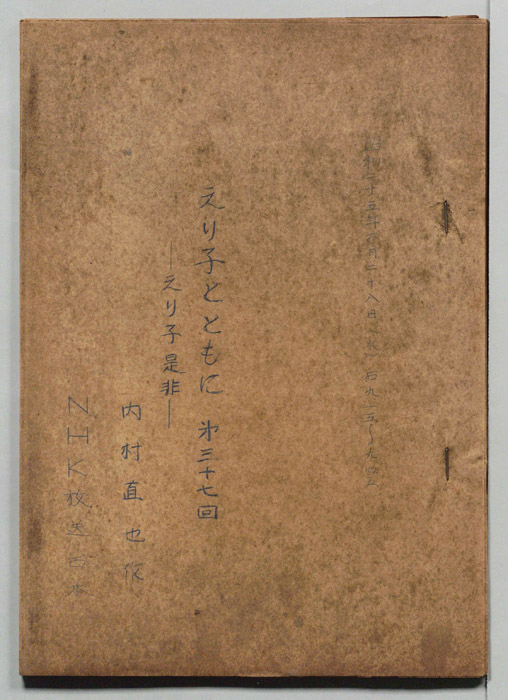 昭和二十五年 月二十八日 水 后九・一五〜九・四五
えり子とともに 㐧三十七回
―えり子是非―
内村直也作
NHK放送台本